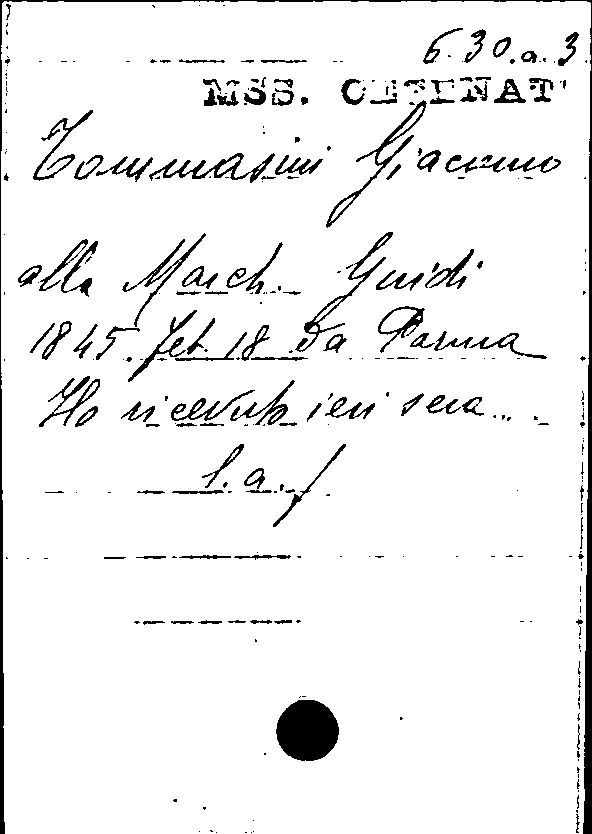 6.30.a.3
MSS. CESENAT
Tommasini Giacomo
alla March. Guidi
1845. feb. 18 Da Parma
Ho ricevuto ieri sera...
l. a. f